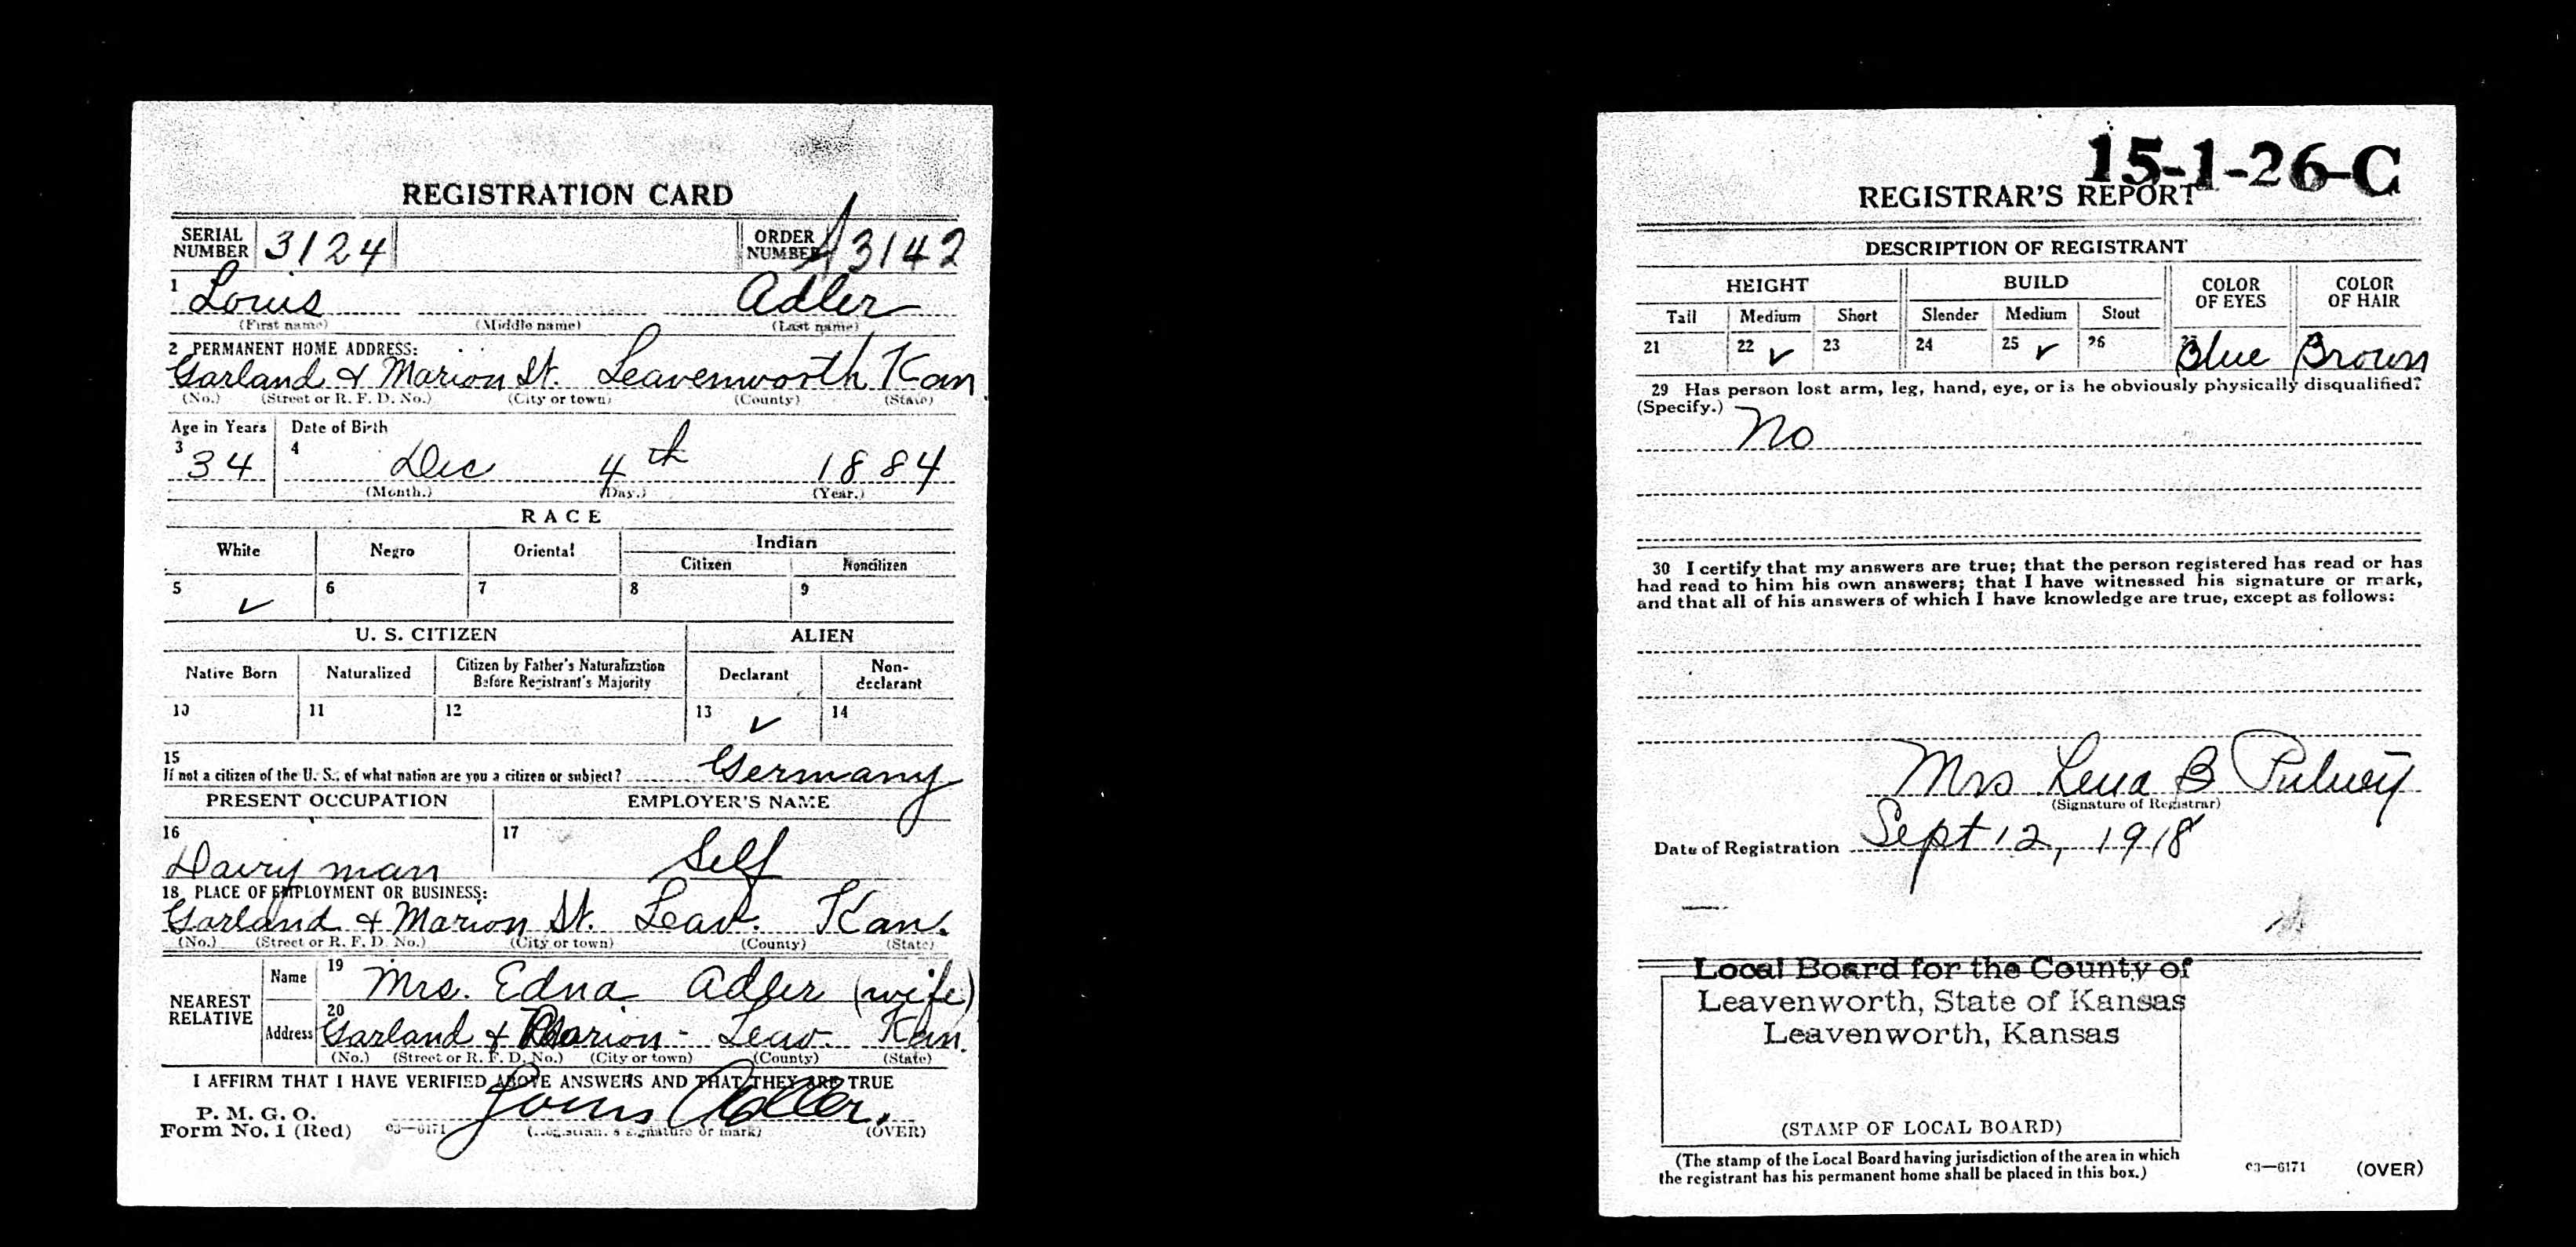 REGISTRATION CARD
SERIAL NUMBER 3124 ORDER NUMBER A3142
1 Louis Adler
(First name) (Middle name) (Last name)
2 PERMANENT HOME ADDRESS:
Garland & Marion St. Leavenworth Kan
(No.) (Street or R. F. D. No.) (City or town) (County) (State)
Age in Years Date of Birth
3 34 4 Dec 4th 1884
(Month.) (Day.) (Year.)
RACE
White Negro Oriental Indian
Citizen Noncitizen
5 ✓ 6 7 8 9
U. S. CITIZEN ALIEN
Native Born Naturalized Citizen by Father's Naturalization Before Registrant's Majority Declarant Non-declarant
10 11 12 13 ✓ 14
15
If not a citizen of the U. S., of what nation are you a citizen or subject? Germany
PRESENT OCCUPATION EMPLOYER'S NAME
16 17
Dairy man Self
18 PLACE OF EMPLOYMENT OR BUSINESS:
Garland & Marion St. Leav. Kan.
(No.) (Street or R. F. D. No.) (City or town) (County) (State)
NEAREST RELATIVE
Name 19 Mrs. Edna Adler (wife)
Address 20 Garland & Marion - Leav. Kan.
(No.) (Street or R. F. D. No.) (City or town) (County) (State)
I AFFIRM THAT I HAVE VERIFIED ABOVE ANSWERS AND THAT THEY ARE TRUE
P. M. G. O.
Form No. 1 (Red) 03—6171 Louis Adler.
(Registrant's signature or mark) (OVER)
15-1-26-C
REGISTRAR'S REPORT
DESCRIPTION OF REGISTRANT
HEIGHT BUILD COLOR OF EYES COLOR OF HAIR
Tall Medium Short Slender Medium Stout
21 22 ✓ 23 24 25 ✓ 26 Blue Brown
29 Has person lost arm, leg, hand, eye, or is he obviously physically disqualified?
(Specify.) No
30 I certify that my answers are true; that the person registered has read or has
had read to him his own answers; that I have witnessed his signature or mark,
and that all of his answers of which I have knowledge are true, except as follows:
Mrs Lena B
(Signature of Registrar)
Date of Registration Sept 12, 1918
Local Board for the County of
Leavenworth, State of Kansas
Leavenworth, Kansas
(STAMP OF LOCAL BOARD)
(The stamp of the Local Board having jurisdiction of the area in which
the registrant has his permanent home shall be placed in this box.)
03—6171 (OVER)